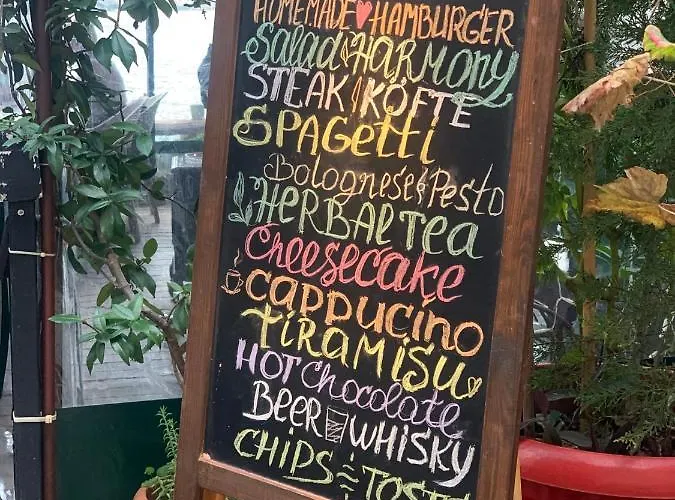 HOMEMADE HAMBURGER
Salad & HARMONY
STEAK KÖFTE
SPAGETTI
Bolognese & Pesto
HERBAL TEA
Cheesecake
CAPPUCINO
TIRAMISU
HOT Chocolate
BEER WHISKY
CHIPS TOSTS